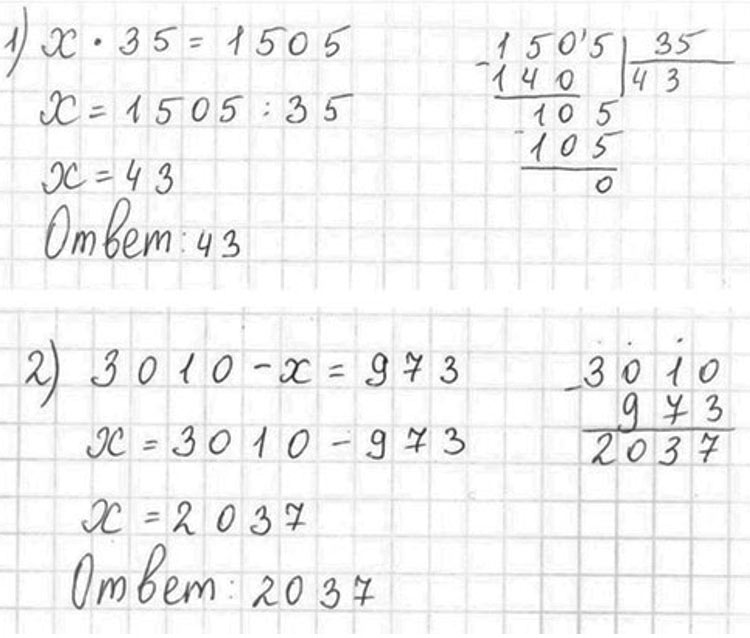 1) x · 35 = 1505
x = 1505 : 35
x = 43
Ответ: 43
- 1505 | 35
140 | 43
105
- 105
0
2) 3010 - x = 973
x = 3010 - 973
x = 2037
Ответ: 2037
- 3010
973
2037